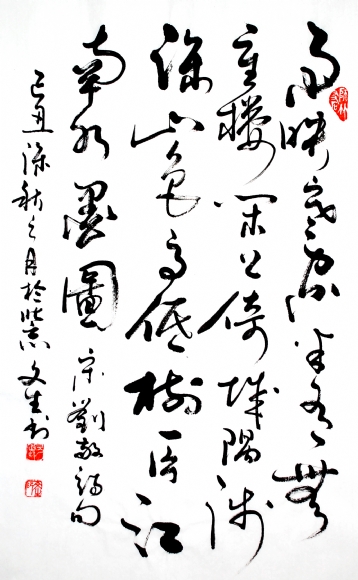 雨映寒空半有無
重楼闲上倚城隅浅
深山色高低树一片江
南水墨圖
宋劉敞詩句
己丑深秋之月於 文生书